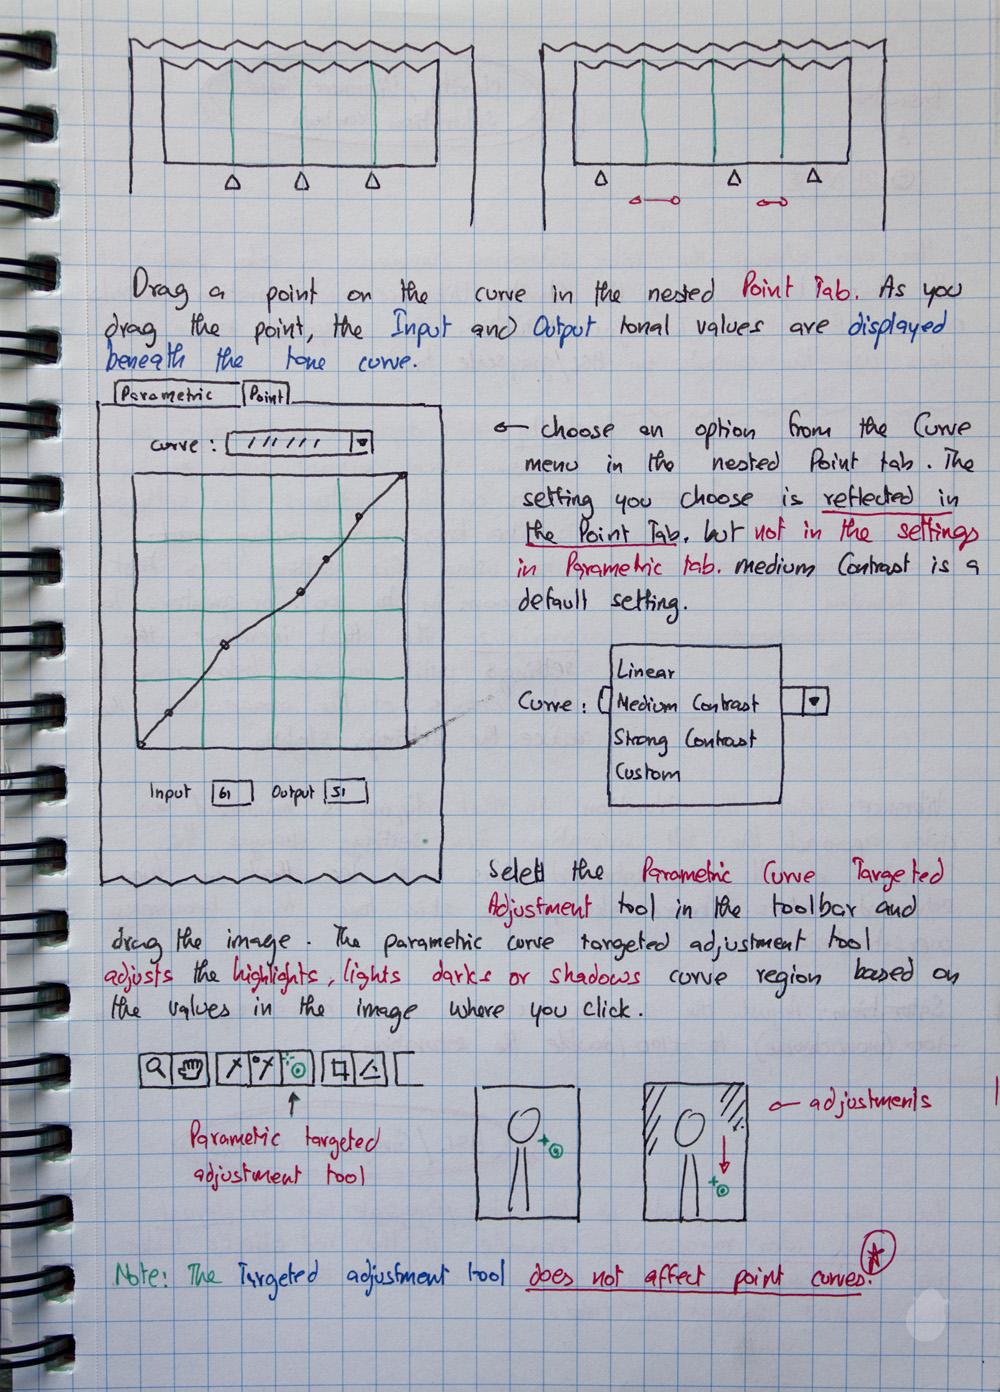 Drag a point on the curve in the nested Point Tab. As you
drag the point, the Input and Output tonal values are displayed
beneath the tone curve.
Parametric Point
curve :
Input 61 Output 51
choose an option from the Curve
menu in the nested Point tab. The
setting you choose is reflected in
the Point Tab, but not in the settings
in Parametric tab. medium Contrast is a
default setting.
Curve :
Linear
Medium Contrast
Strong Contrast
Custom
Select the Parametric Curve Targeted
Adjustment tool in the toolbar and
drag the image. The parametric curve targeted adjustment tool
adjusts the highlights, lights darks or shadows curve region based on
the values in the image where you click.
Parametric targeted
adjustment tool
adjustments
Note: The Targeted adjustment tool does not affect point curves.